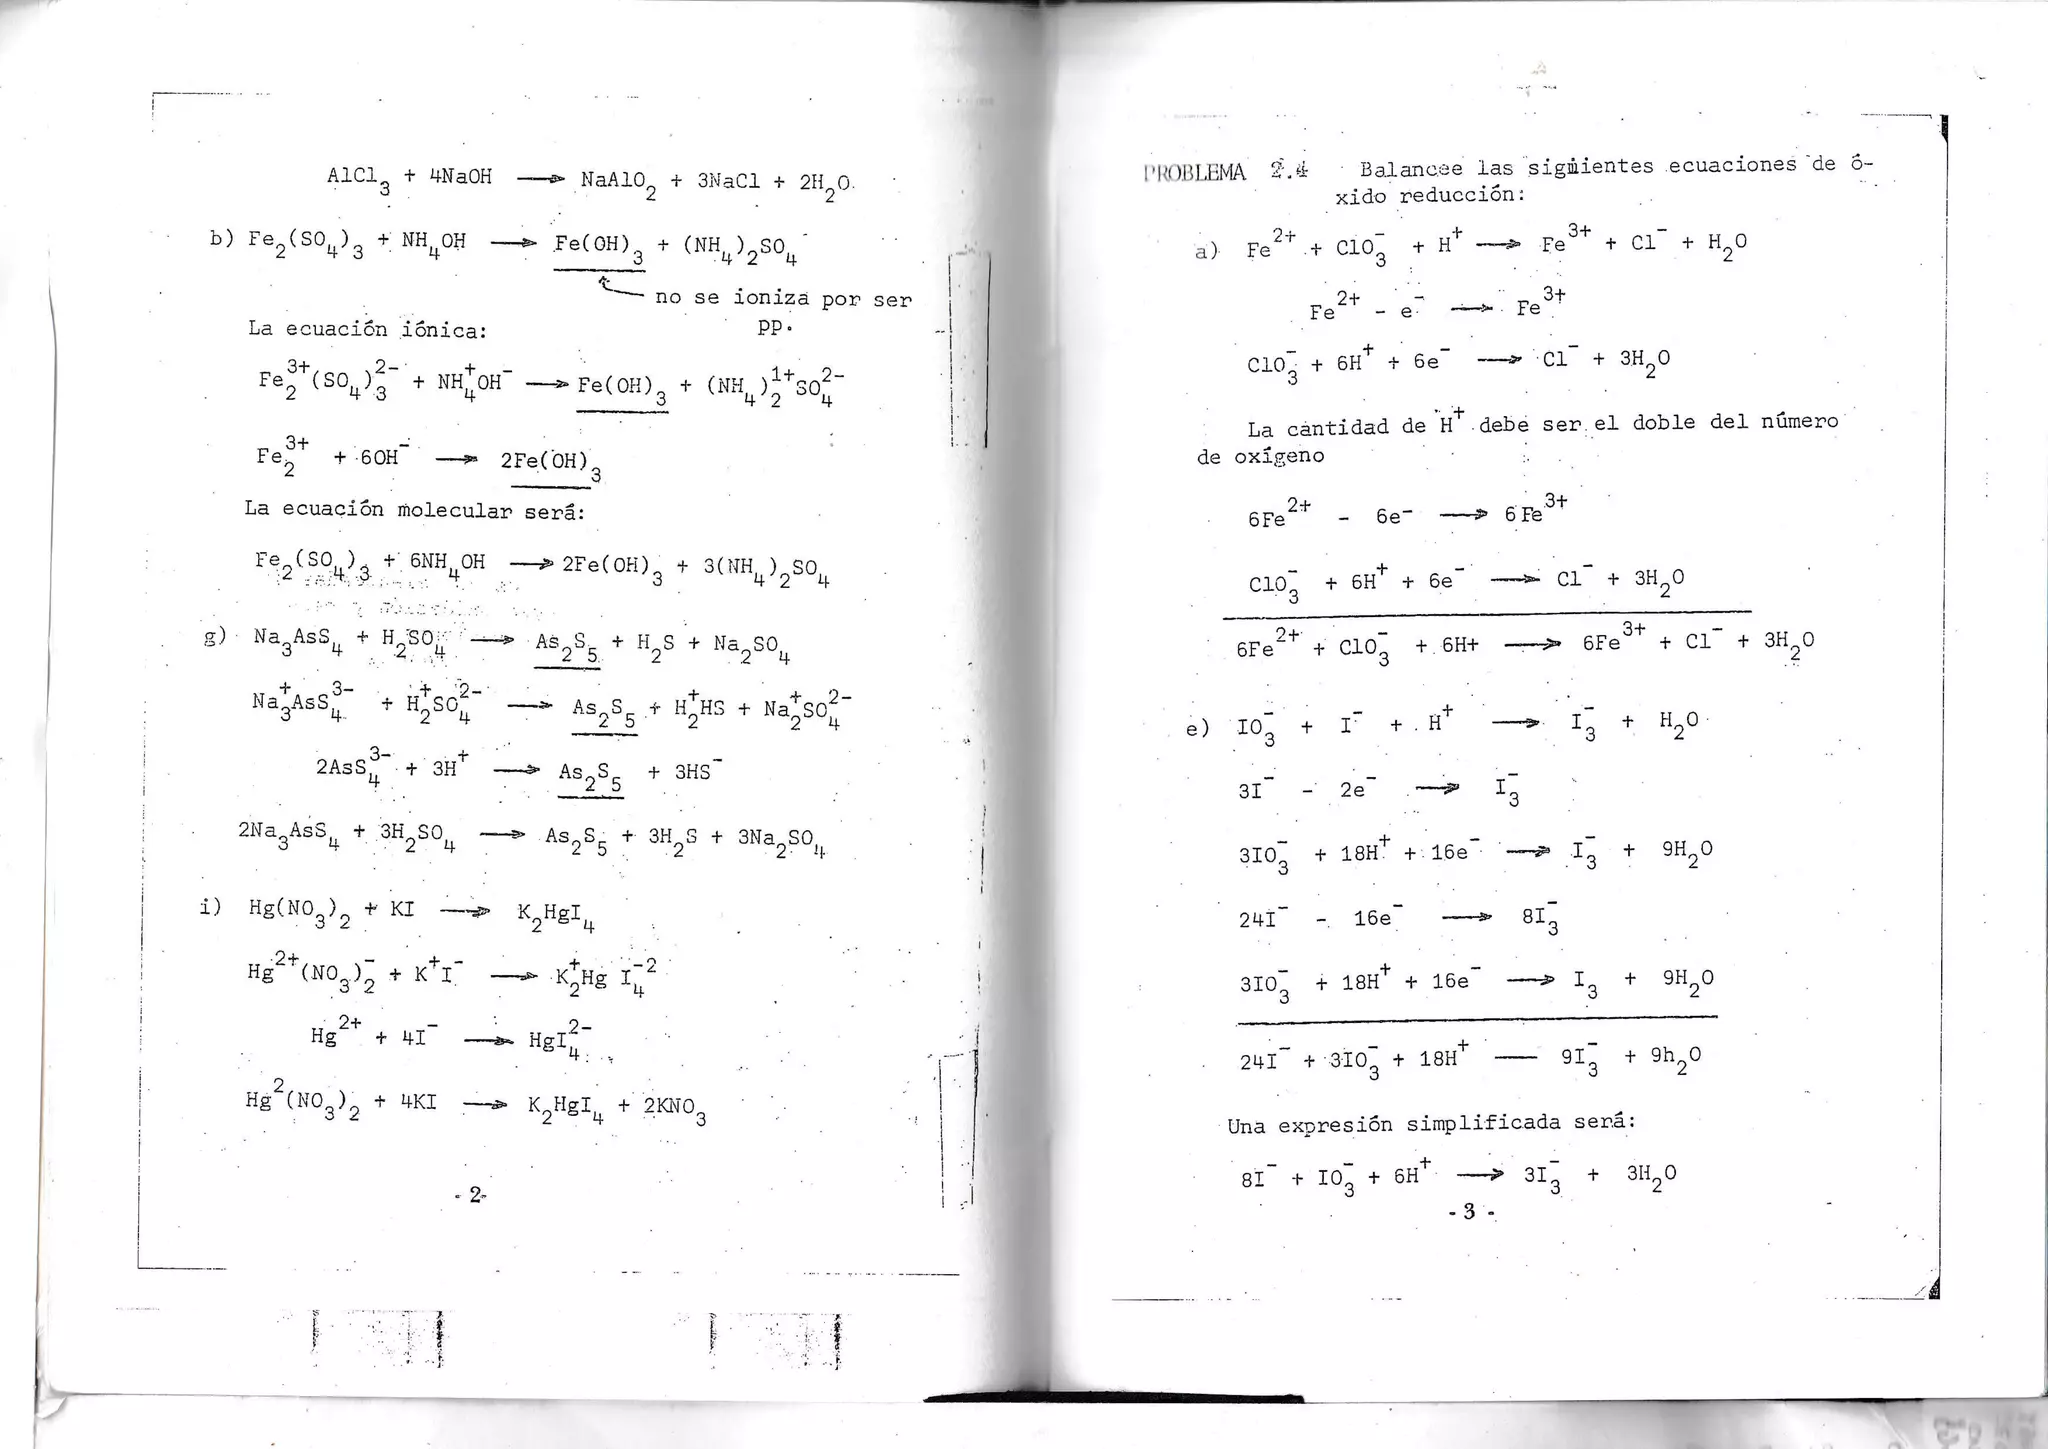 AlCl₃ + 4NaOH → NaAlO₂ + 3NaCl + 2H₂O.
b) Fe₂(SO₄)₃ + NH₄OH → Fe(OH)₃ + (NH₄)₂SO₄
no se ioniza por ser
La ecuación iónica: pp.
Fe₂³⁺(SO₄)₃²⁻ + NH₄⁺OH⁻ → Fe(OH)₃ + (NH₄)₂¹⁺SO₄²⁻
Fe₂³⁺ + 6OH⁻ → 2Fe(OH)₃
La ecuación molecular será:
Fe₂(SO₄)₃ + 6NH₄OH → 2Fe(OH)₃ + 3(NH₄)₂SO₄
g) Na₃AsS₄ + H₂SO₄ → As₂S₅ + H₂S + Na₂SO₄
Na₃⁺AsS₄³⁻ + H₂⁺SO₄²⁻ → As₂S₅ + H₂⁺HS + Na₂⁺SO₄²⁻
2AsS₄³⁻ + 3H⁺ → As₂S₅ + 3HS⁻
2Na₃AsS₄ + 3H₂SO₄ → As₂S₅ + 3H₂S + 3Na₂SO₄
i) Hg(NO₃)₂ + KI → K₂HgI₄
Hg²⁺(NO₃)₂⁻ + K⁺I⁻ → K₂⁺Hg I₄⁻²
Hg²⁺ + 4I⁻ → HgI₄²⁻
Hg²(NO₃)₂ + 4KI → K₂HgI₄ + 2KNO₃
- 2-
PROBLEMA 2.4 Balancee las sigüientes ecuaciones de ó-
xido reducción:
a) Fe²⁺ + ClO₃⁻ + H⁺ → Fe³⁺ + Cl⁻ + H₂O
Fe²⁺ - e⁻ → Fe³⁺
ClO₃⁻ + 6H⁺ + 6e⁻ → Cl⁻ + 3H₂O
La cantidad de H⁺ debe ser el doble del número
de oxígeno
6Fe²⁺ - 6e⁻ → 6Fe³⁺
ClO₃⁻ + 6H⁺ + 6e⁻ → Cl⁻ + 3H₂O
6Fe²⁺ + ClO₃⁻ + 6H+ → 6Fe³⁺ + Cl⁻ + 3H₂O
e) IO₃⁻ + I⁻ + H⁺ → I₃⁻ + H₂O
3I⁻ - 2e⁻ → I₃⁻
3IO₃⁻ + 18H⁺ + 16e⁻ → I₃⁻ + 9H₂O
24I⁻ - 16e⁻ → 8I₃⁻
3IO₃⁻ + 18H⁺ + 16e⁻ → I₃ + 9H₂O
24I⁻ + 3IO₃⁻ + 18H⁺ — 9I₃⁻ + 9h₂O
Una expresión simplificada será:
8I⁻ + IO₃⁻ + 6H⁺ → 3I₃⁻ + 3H₂O
- 3 -